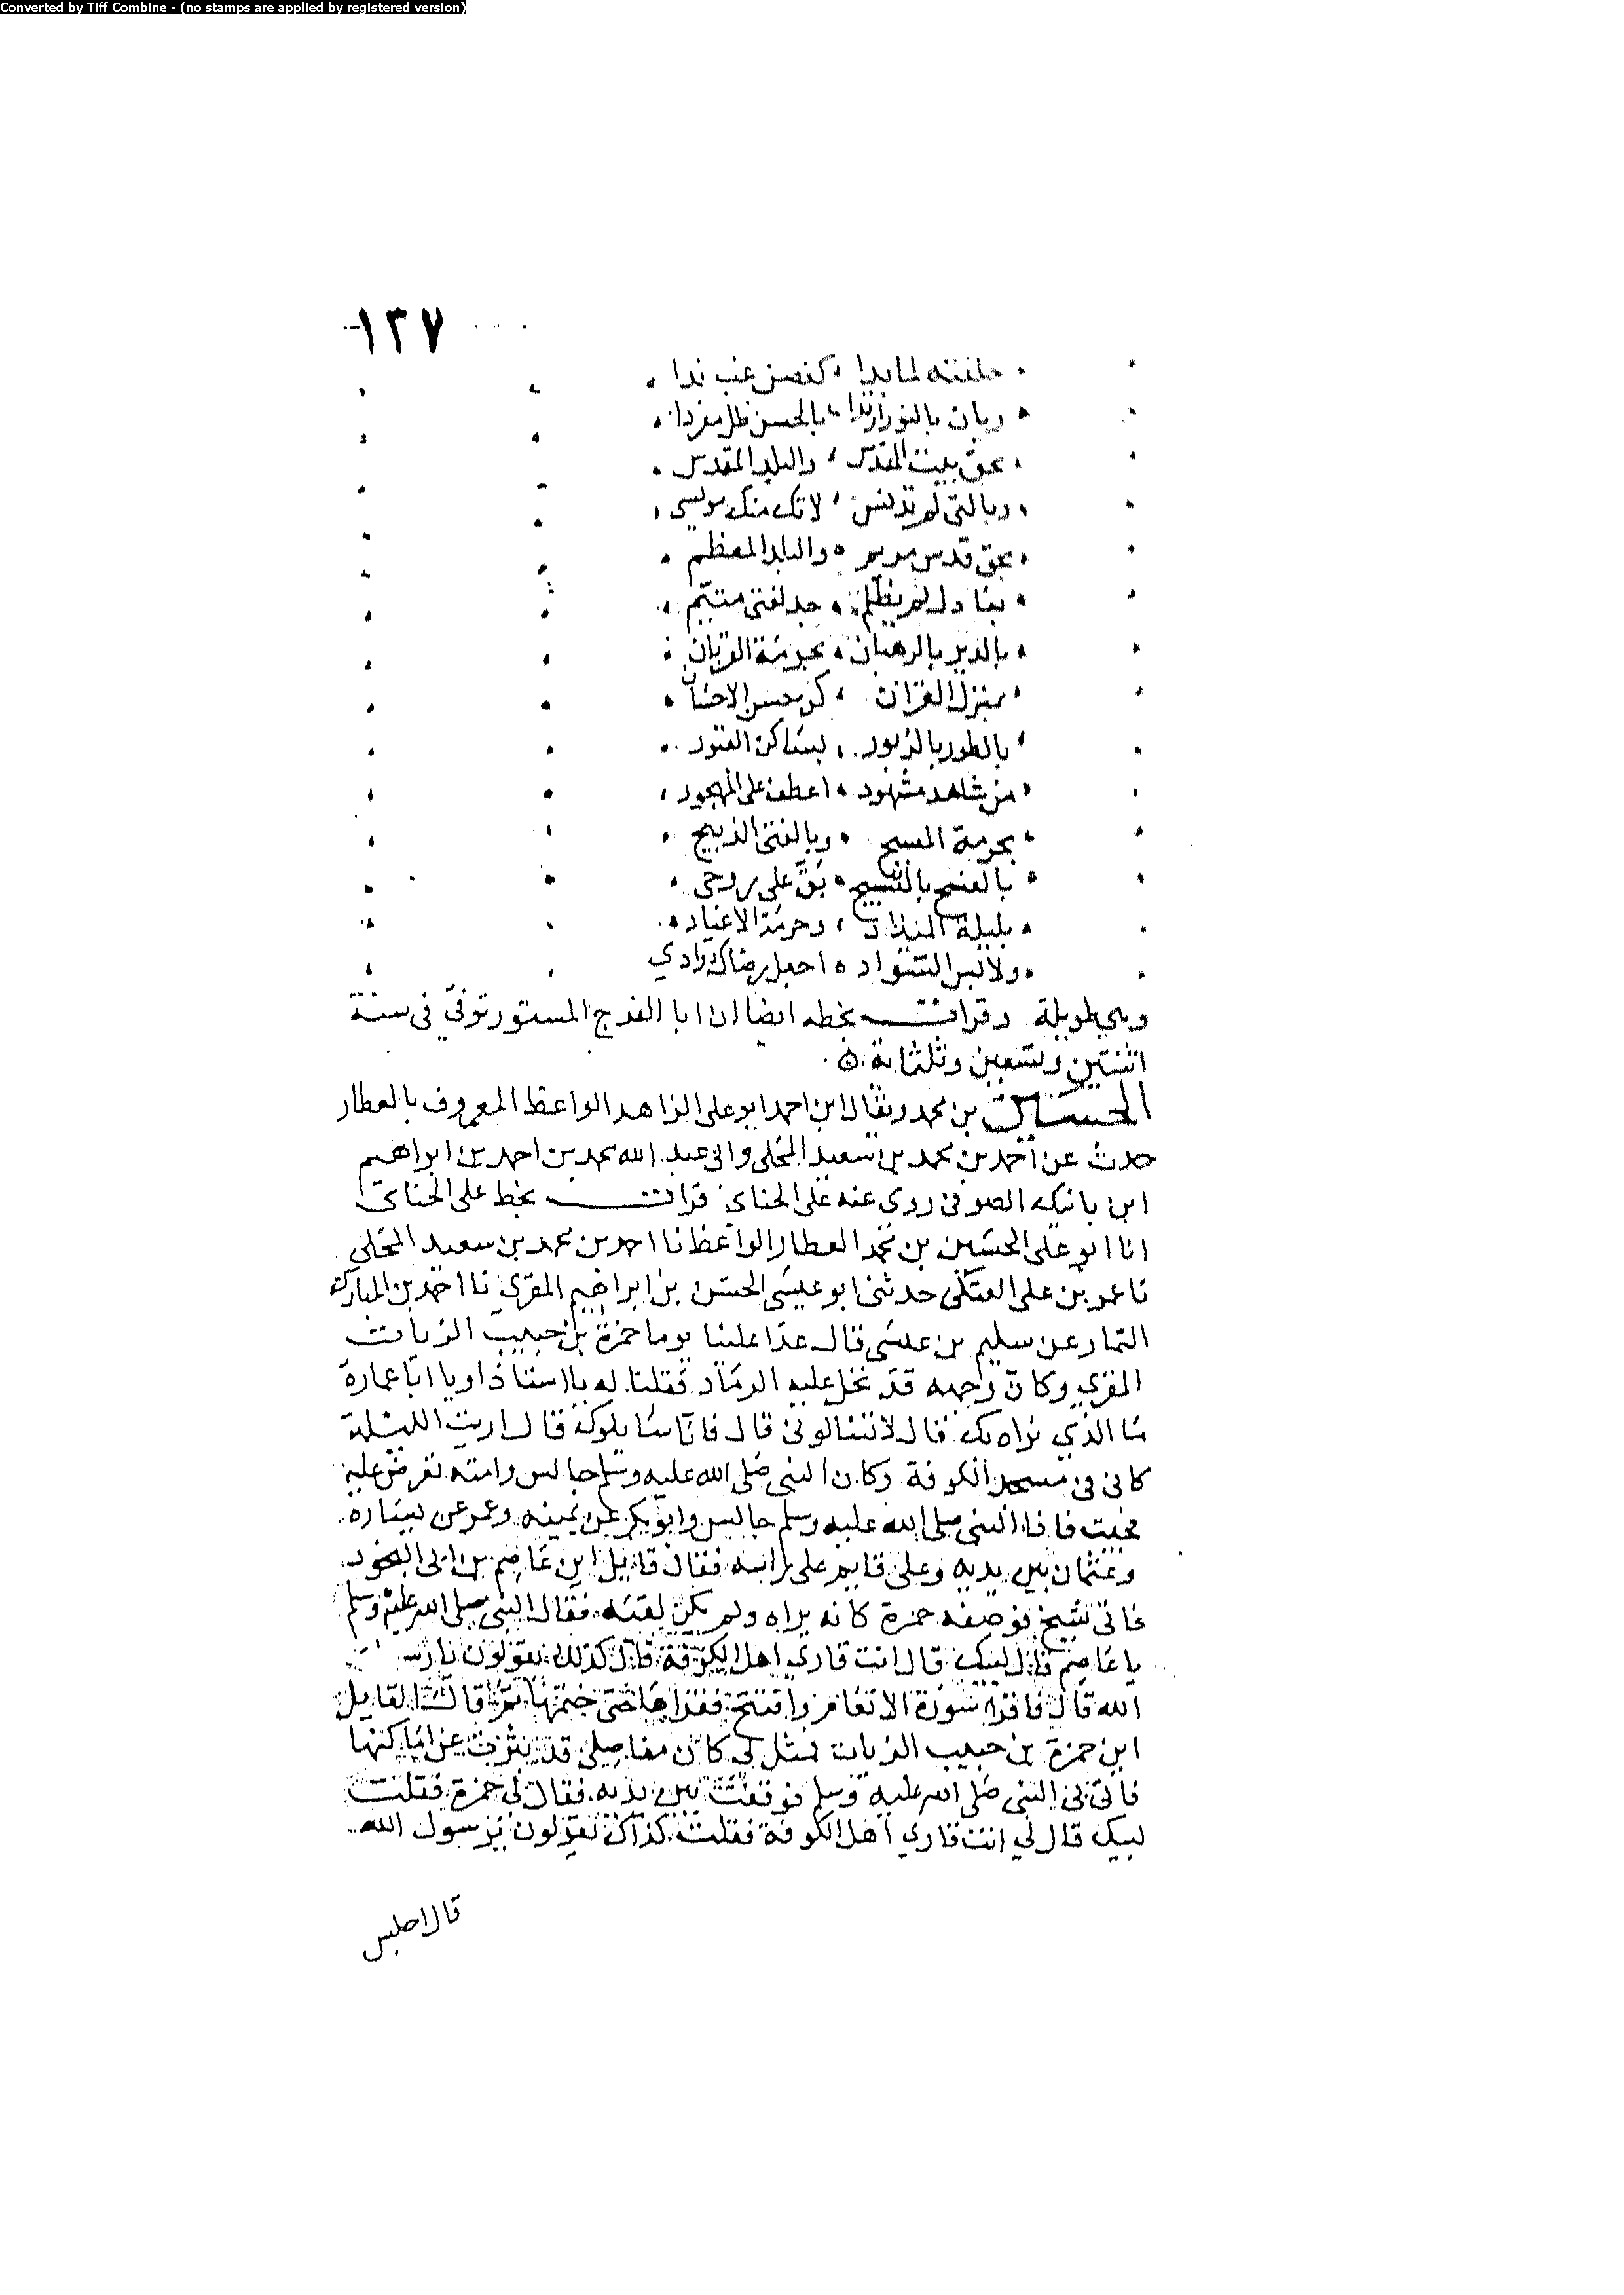 Converted by Tiff Combine - (no stamps are applied by registered version)
١٣٧
علقته لما بدا كغصن غب ندا
ريان بالنور ارتدا بالحسن ظل مفردا
بحق بيت المقدس والبلد المقدس
وبالتي لم تدنس لا تك منك مويسي
بحق قدس مريم والبلد المعظم
بعادل لم يظلم جد لفتى متيم
بالدير بالرهبان بحرمة القربان
بمنزل القران كن حسن الاحسان
بالطور بالزبور بساكن القبور
من شاهد مشهود اعطف على المهجور
بحرمة المسيح وبالفتى الذبيح
بالفصح بالتسبيح بق على روحي
بليلة الميلاد وحرمة الاعياد
ولابس السواد اجعل رضاك زادي
وهي طويلة وقرات بخطه ايضا ان ابا الفرج المستور توفي في سنة
اثنتين وتسعين وثلثماية
الحسين بن محمد ويقال ابن احمد ابو علي الزاهد الواعظ المعروف بالعطار
حدث عن احمد بن محمد بن سعيد وابي عبد الله محمد بن احمد بن ابراهيم
ابن بانيك الصوفي روى عنه علي الحناي قرات بخط علي الحناي
انا ابو علي الحسين بن محمد العطار الواعظ نا احمد بن محمد بن سعيد
نا عمر بن علي العتكي حدثني ابو عيسى الحسن بن ابراهيم المقري نا احمد بن المبارك
التمار عن سليم بن عيسى قال غدا علينا يوما حمزة بن حبيب الزيات
المقري وكان وجهه قد نخل عليه الرماد فقلنا له يا استاذ او يا ابا عمارة
ما الذي نراه بك قال لا تسالوني قال فانا سايلوك قال اريت الليلة
كاني في مسجد الكوفة وكان النبي صلى الله عليه وسلم جالس وامته تعرض عليه
فجيت فاذا النبي صلى الله عليه وسلم جالس وابو بكر عن يمينه وعمر عن يساره
وعثمان بين يديه وعلي قايم على راسه فقال قايل اين عاصم بن ابي النجود
فاتي بشيخ فوصفه حمزة كانه يراه ولم يكن لقيه فقال النبي صلى الله عليه وسلم
يا عاصم قال لبيك قال انت قاري اهل الكوفة قال كذلك يقولون يا رسول
الله قال فاقرا سورة الانعام وافتتح فقراها حتى ختمها ثم قال القايل
اين حمزة بن حبيب الزيات فمثل لي كان مفاصلي قد بترت عن اماكنها
فاتي بي النبي صلى الله عليه وسلم فوقفت بين يديه فقال لي حمزة فقلت
لبيك قال لي انت قاري اهل الكوفة فقلت كذاك يقولون يرسول الله
قال اجلس